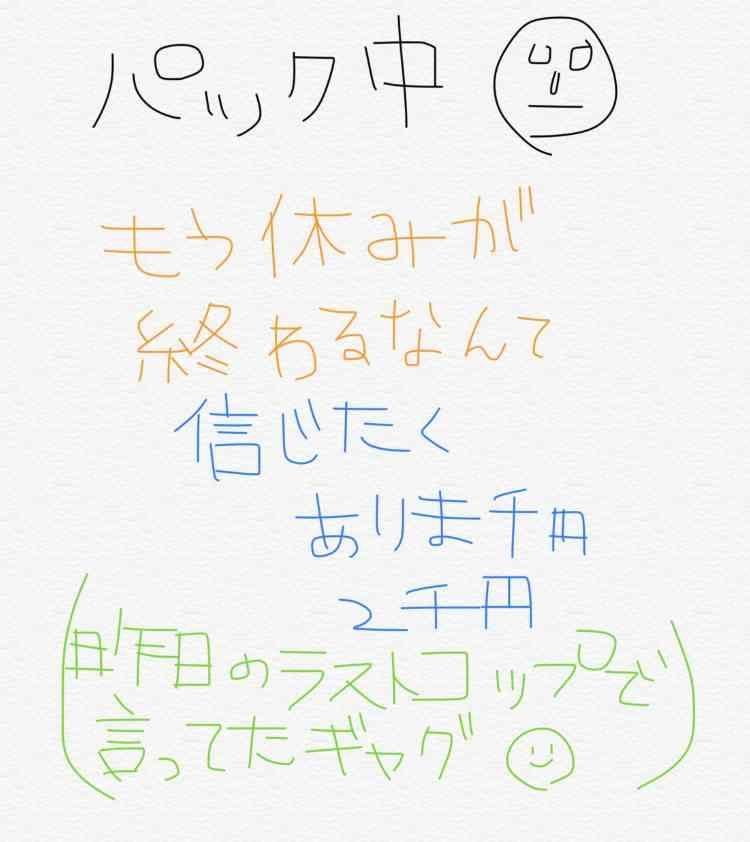 パック中
もう休みが
終わるなんて
信じたく
ありま千円
2千円
(昨日のラストコップで
言ってたギャグ)